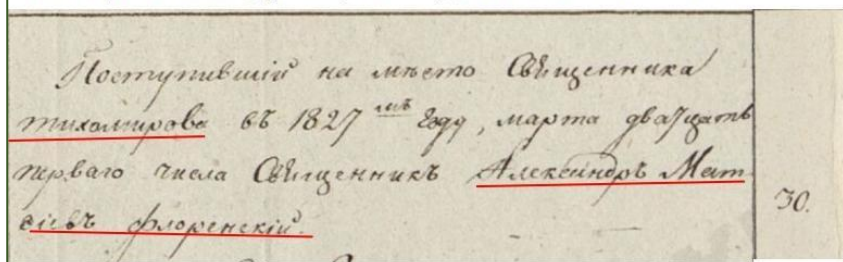 Поступившій на мѣсто Священника
тихомирова въ 1827мъ году, марта двадцать
перваго числа Священникъ Александръ Мат-
віевъ Флоренскій.
30.